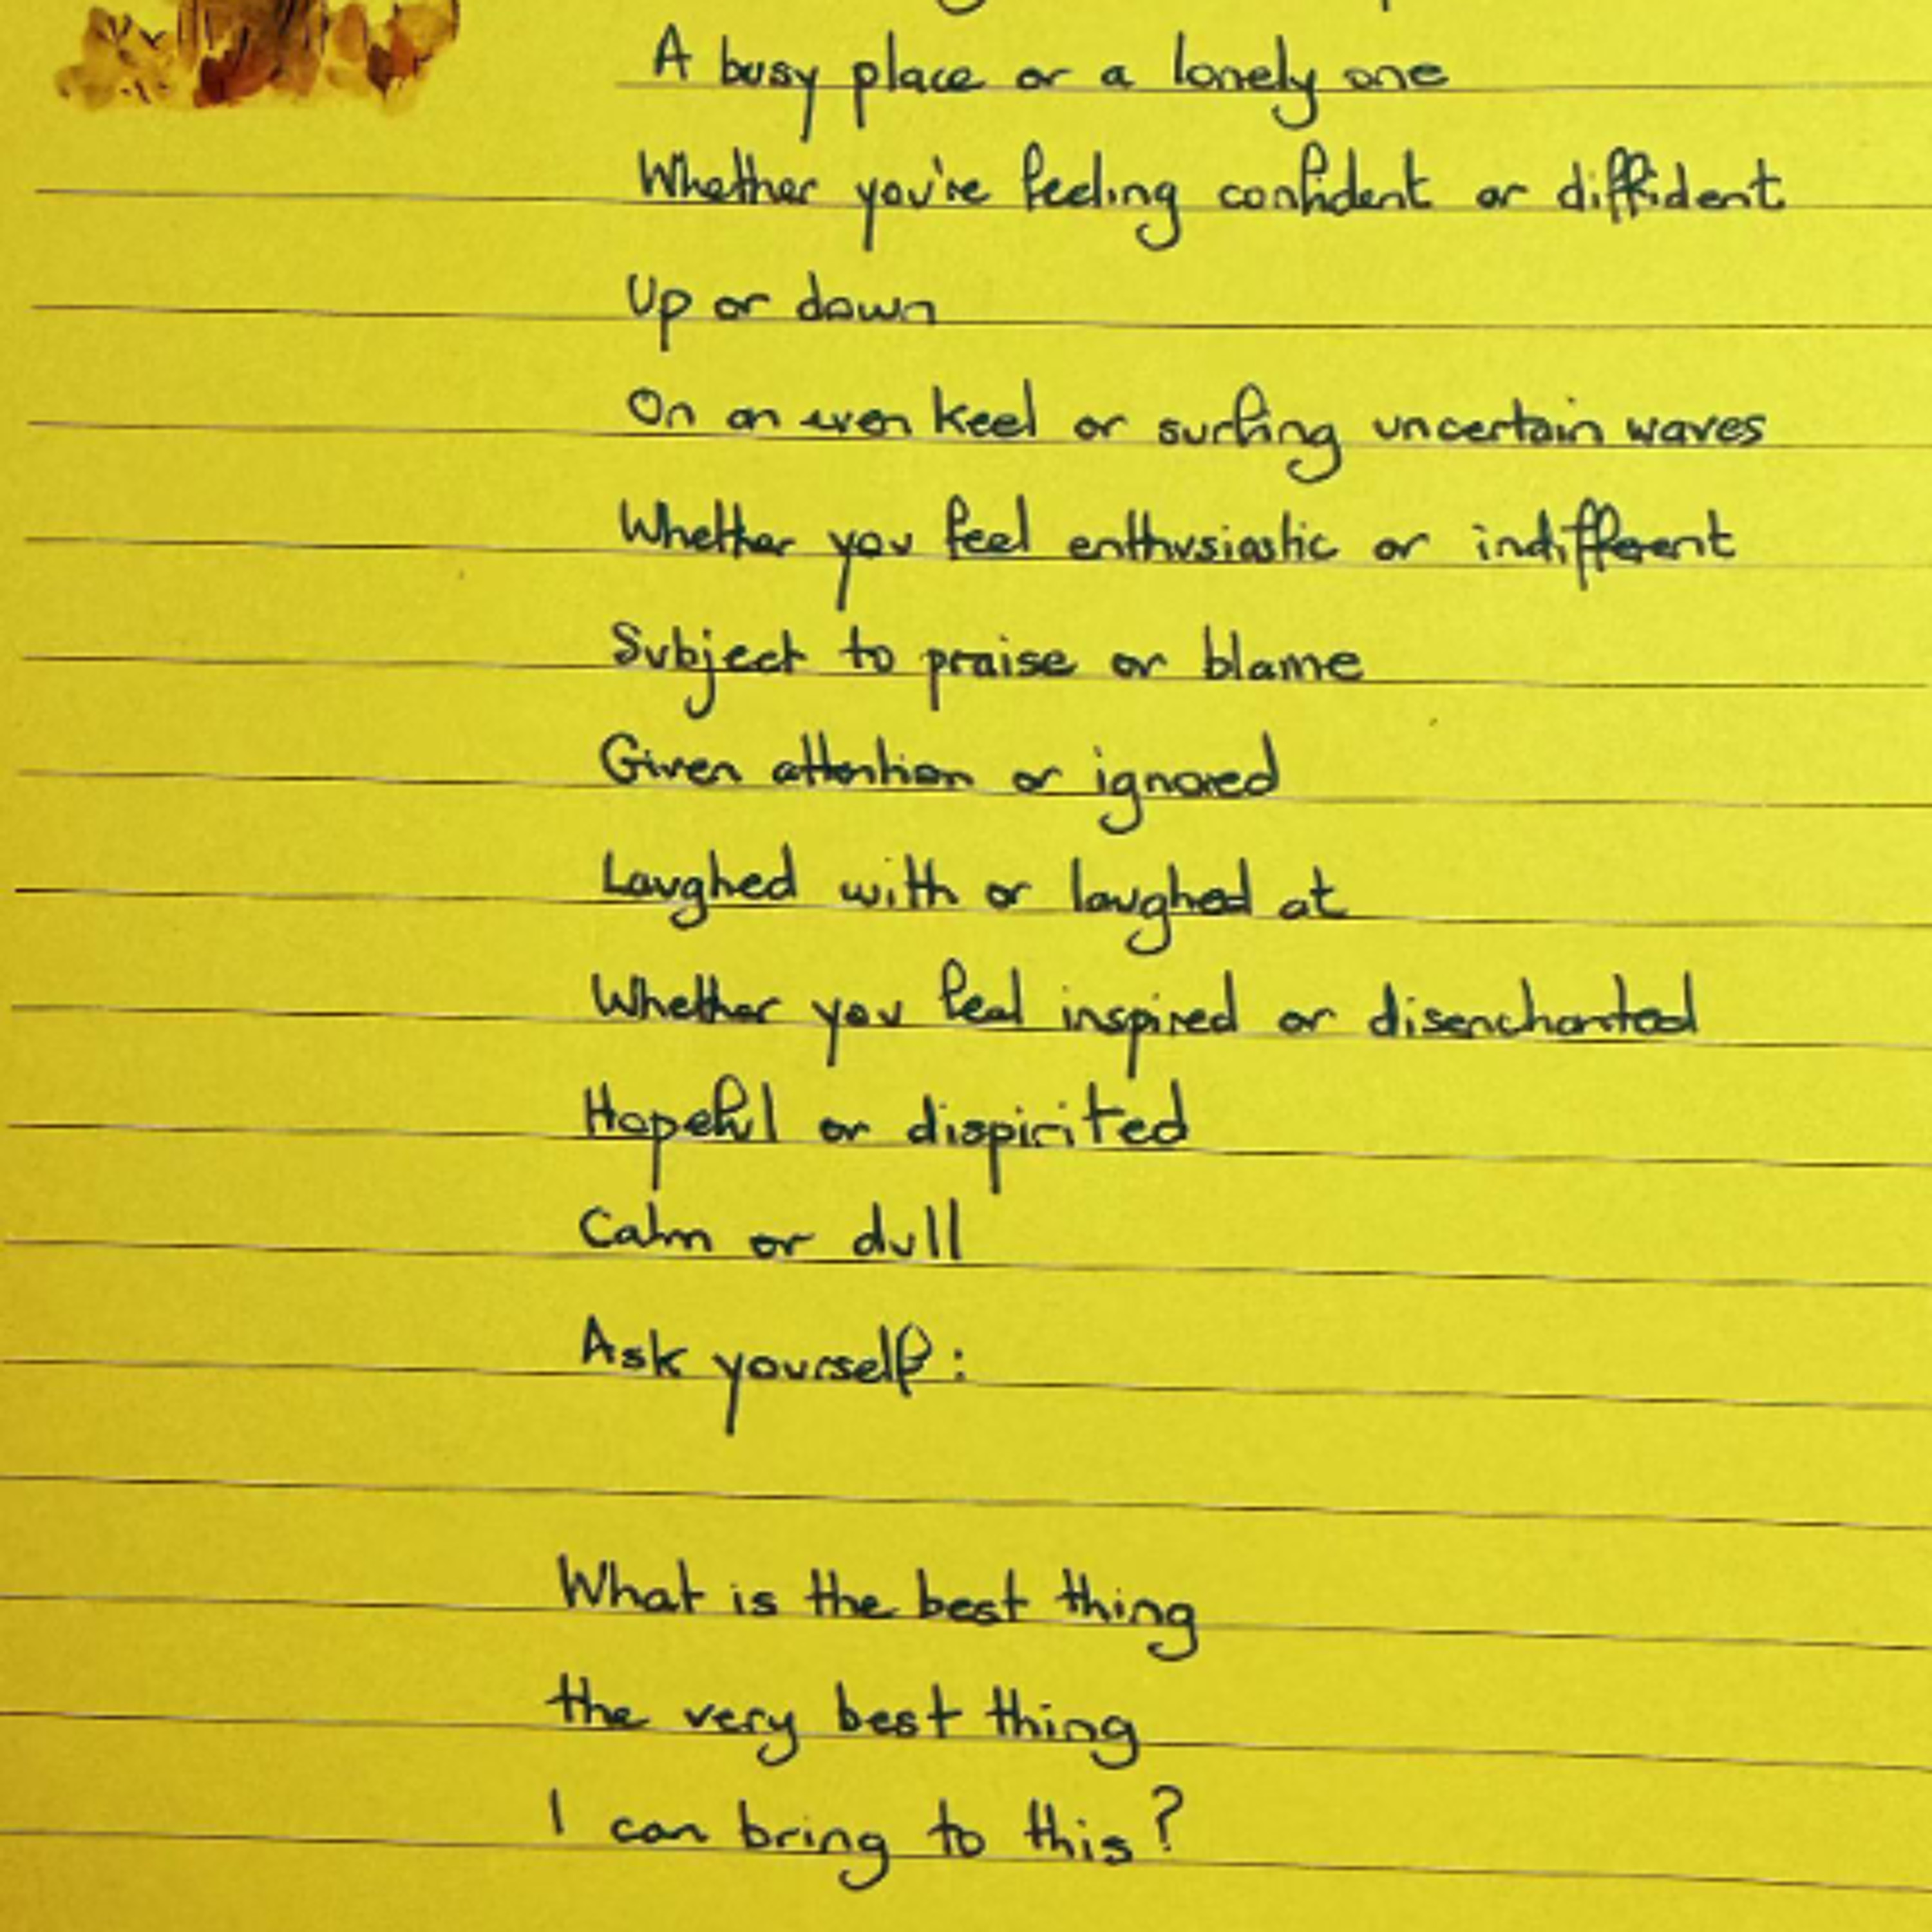 A busy place or a lonely one
Whether you're feeling confident or diffident
Up or down
On an even keel or surfing uncertain waves
Whether you feel enthusiastic or indifferent
Subject to praise or blame
Given attention or ignored
Laughed with or laughed at
Whether you feel inspired or disenchanted
Hopeful or dispirited
Calm or dull
Ask yourself:
What is the best thing
the very best thing
I can bring to this?